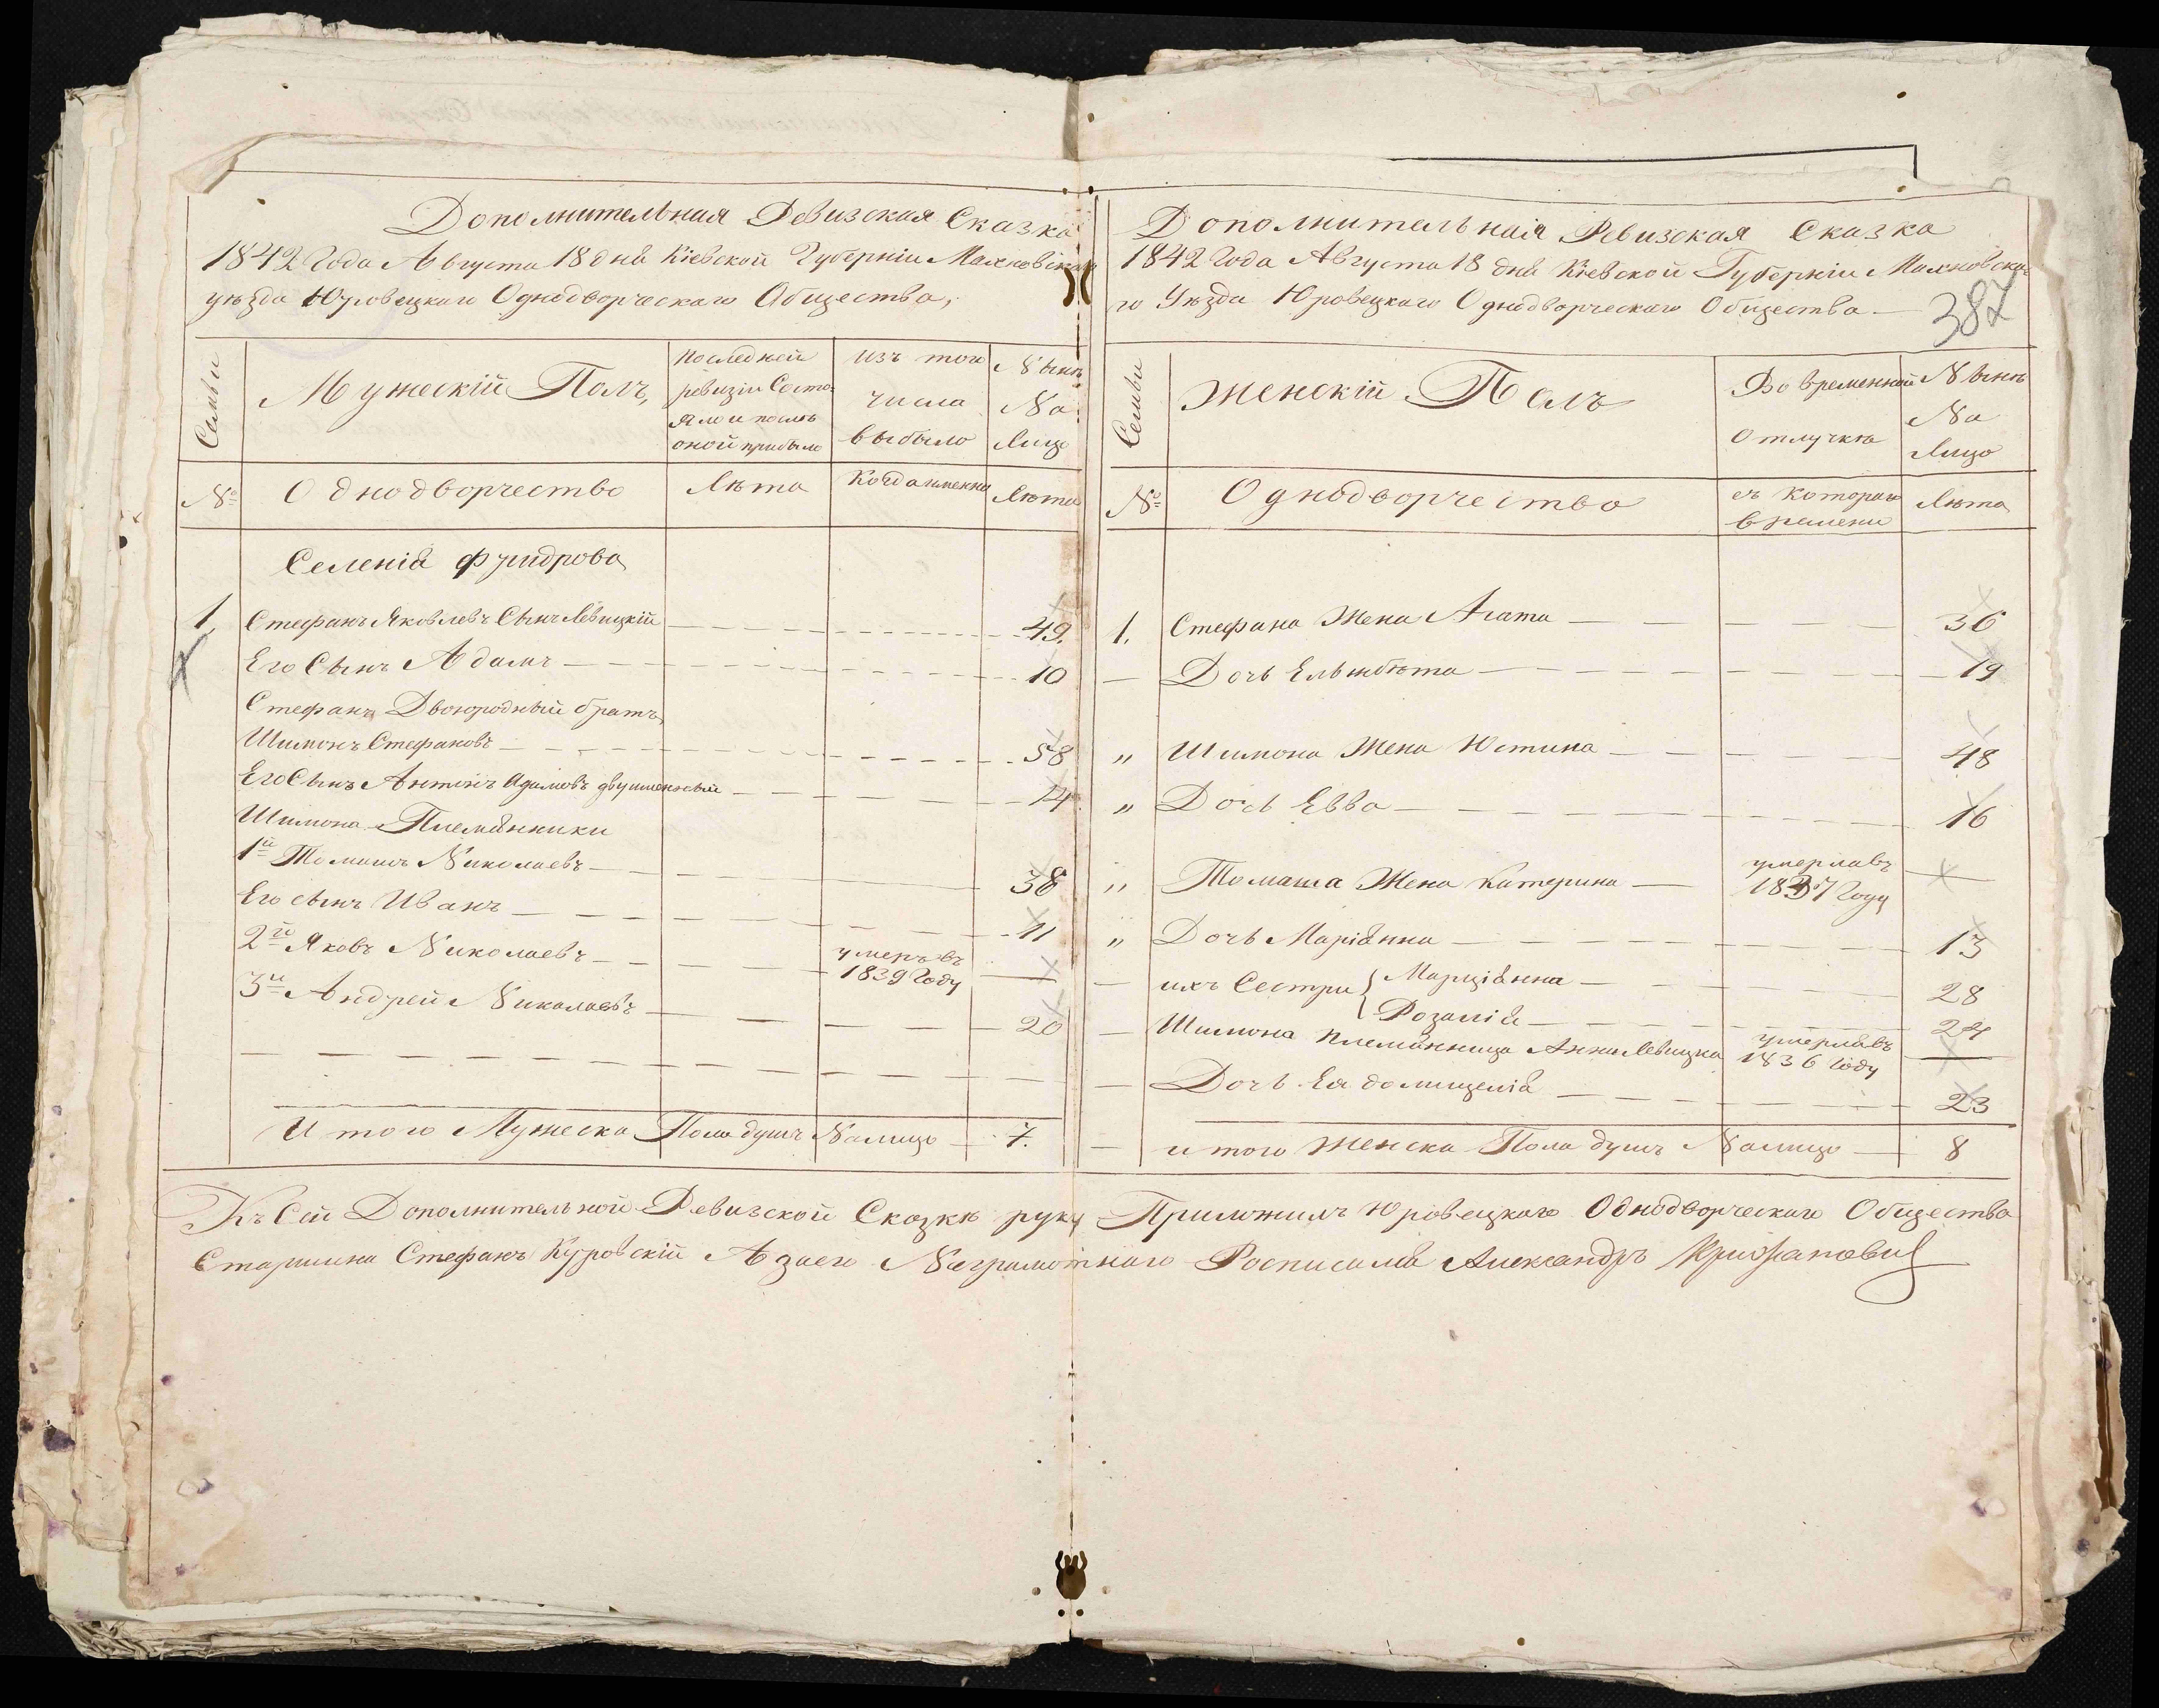 Дополнительная Ревизская Сказка
1842 Года Августа 18 дня Кіевской Губерніи Махновскаго
уѣзда Юровецкаго Однодворческаго Общества,
Семьи
Мужескій Полъ,
последней
ревизіи Состо-
ялои послѣ
оной прибыло
изъ того
числа
выбыло
Нынѣ
На
Лицо
№
Однодворчество
Лѣта
Когда именно
Лѣта
Селенія
1,
Стефанъ Яковлевъ Сынъ Левицкій
49.
Его Сынъ Адамъ
10
Стефана Двоюродный братъ
Шимонъ Стефановъ
58
Его Сынъ Антонъ
14
Шимона Племянники
1й Томашъ Николаевъ
38
Его сынъ Иванъ
11
2й Яковъ Николаевъ
умеръ въ
1839 Году
3й Андрей Николаевъ
20
Итого Мужеска Пола душъ Налицо
7.
Дополнительная Ревизская Сказка
1842 Года Августа 18 дня Кіевской Губерніи Махновска-
го Уѣзда Юровецкаго Однодворческаго Общества
387
Семьи
Женскій Полъ
Во временной
Отлучкѣ
Нынѣ
На
Лицо
№
Однодворчество
съ котораго
времени
Лѣта
1.
Стефана Жена Агата
36
Дочь Ельжбѣта
19
" Шимона Жена Юстина
48
" Дочь Евва
16
" Томаша Жена Катерина
умерла въ
1837 Году
" Дочь Маріянна
13
ихъ Сестри Марціянна
28
Розалія
24
Шимона племянница Анна Левицка
умерла въ
1836 Году
Дочь Ея домицелія
23
итого Женска Пола душъ Налицо
8
Къ Сей Дополнительной Ревизской Сказкѣ руку Приложилъ Юровецкаго Однодворческаго Общества
Старшина Стефанъ Куровскій А заего Неграмотнаго Росписался Александръ